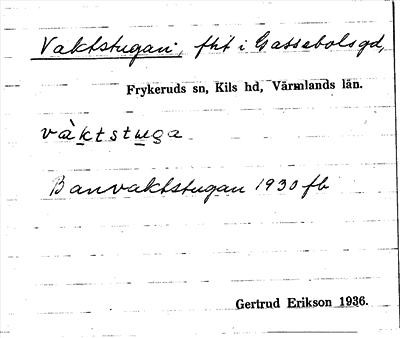 Vaktstugan, fht i Gassebolsgd,
Frykeruds sn, Kils hd, Värmlands län.
và̀ktstuga
Banvaktstugan 1930 fb
Gertrud Erikson 1936.